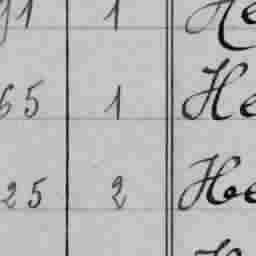 91 1 He
65 1 He
25 2 He